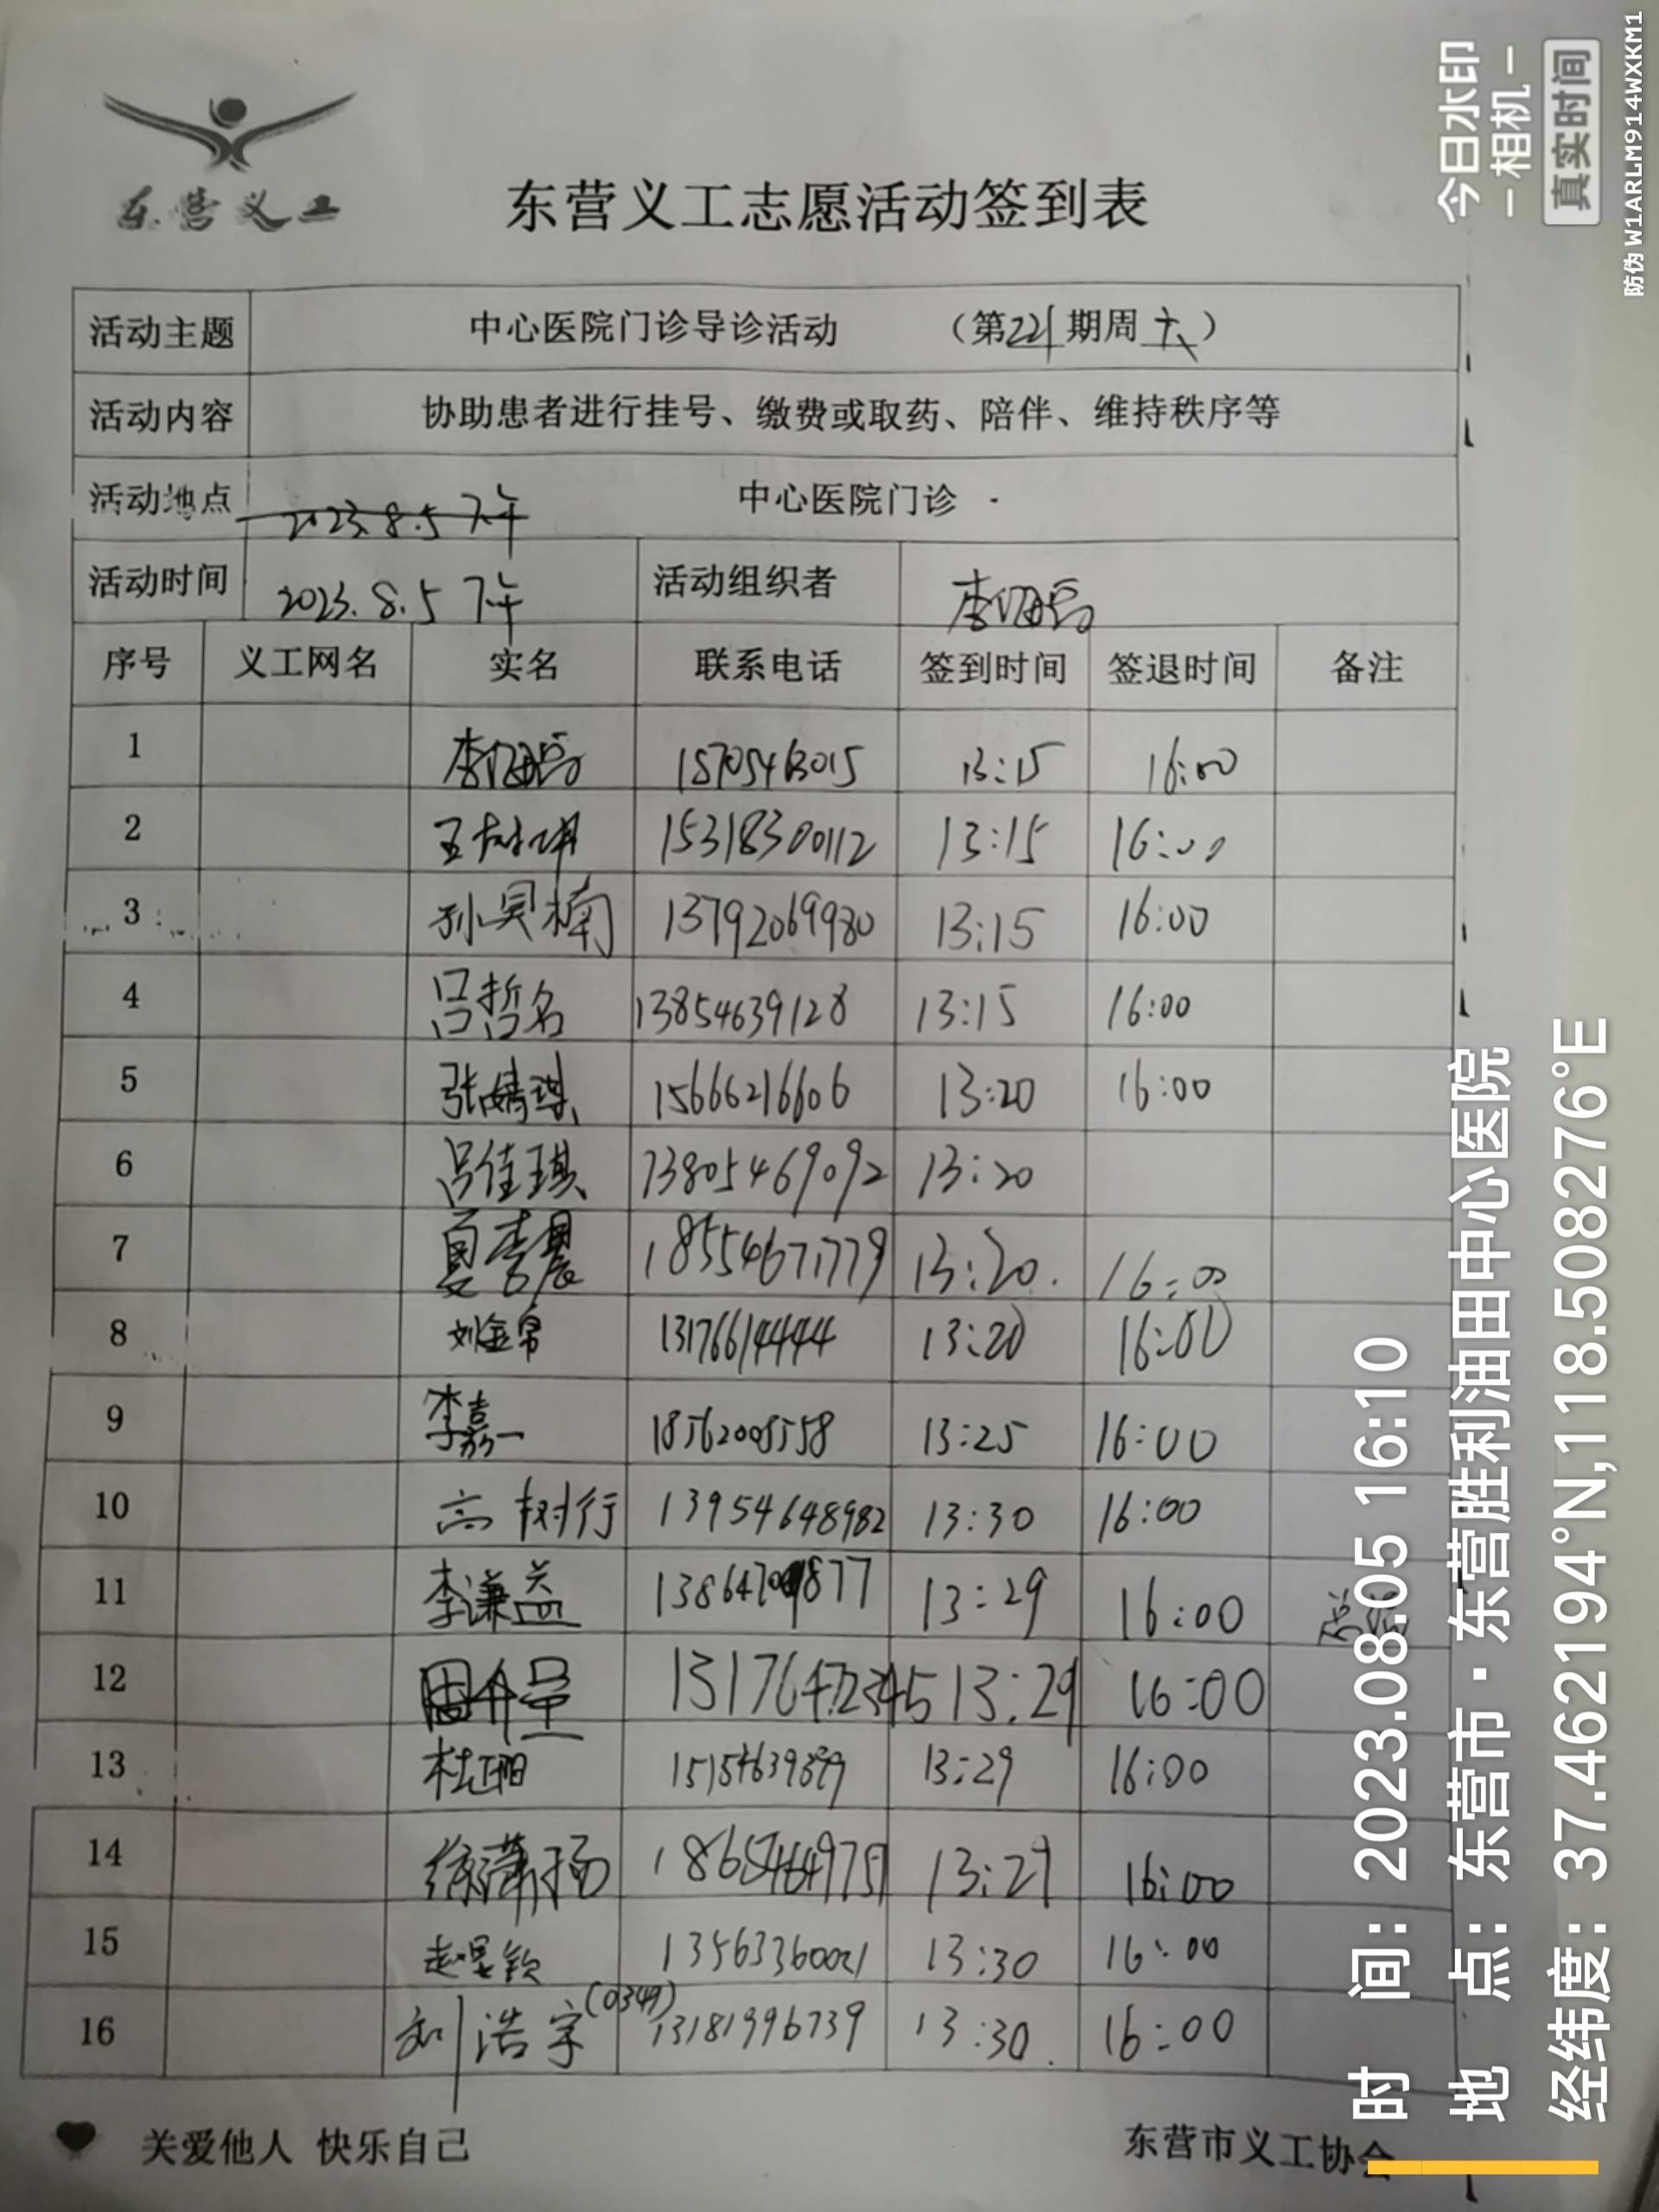 东营义工
东营义工志愿活动签到表
活动主题 中心医院门诊导诊活动 （第221期周六）
活动内容 协助患者进行挂号、缴费或取药、陪伴、维持秩序等
活动地点 2023.8.5 下午 中心医院门诊
活动时间 2023.8.5 下午 活动组织者 李
序号 义工网名 实名 联系电话 签到时间 签退时间 备注
1 李 15705463015 13:15 16:00
2 王 15318300112 13:15 16:00
3 孙昊楠 13792069980 13:15 16:00
4 吕哲名 13854639128 13:15 16:00
5 张婧琪 15666216606 13:20 16:00
6 吕佳琪 13805469092 13:20
7 夏李晨 18554671779 13:20. 16:00
8 刘金帛 13176614444 13:20 16:00
9 李嘉一 18562008558 13:25 16:00
10 高树行 13954648982 13:30 16:00
11 李谦益 13:29 16:00
12 13176472345 13:29 16:00
13 杜 13:29 16:00
14 徐潇扬 18654649751 13:29 16:00
15 赵昱钦 13563360021 13:30 16:00
16 刘浩宇(0349) 13181996739 13:30. 16:00
关爱他人 快乐自己
东营市义工协会
今日水印
相机
真实时间
防伪 W1ARLM914WXKM1
时 间：2023.08.05 16:10
地 点：东营市·东营胜利油田中心医院
经纬度：37.462194°N,118.508276°E